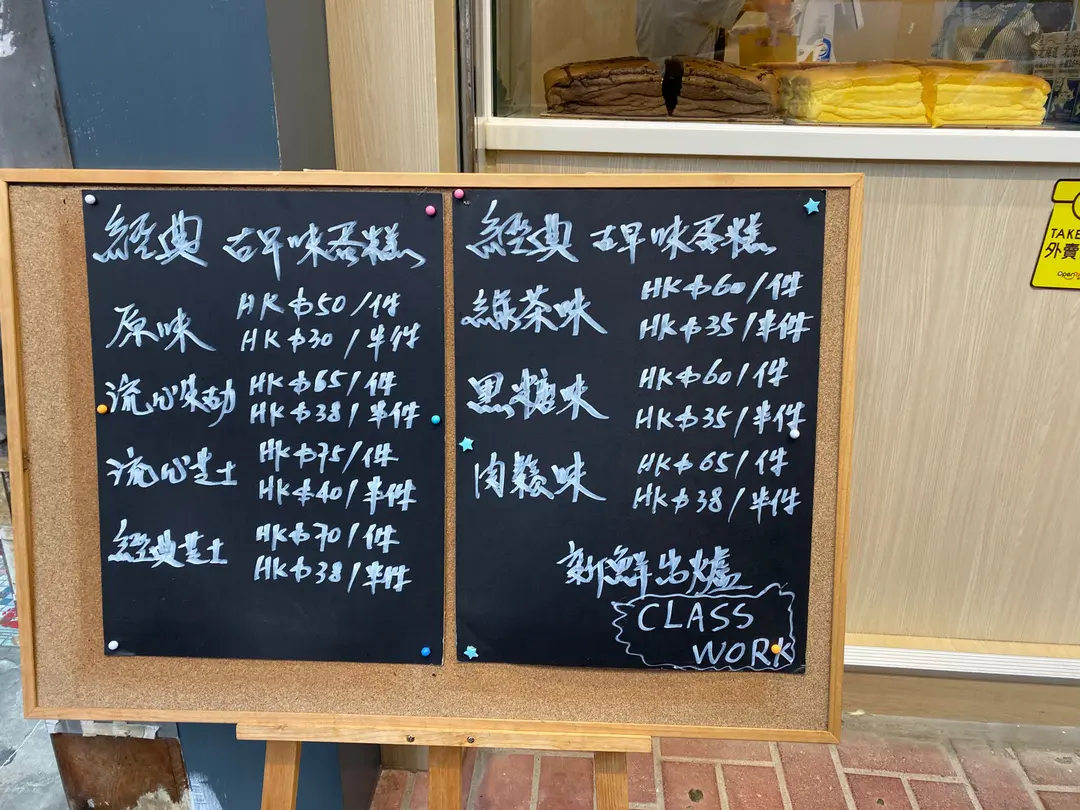 經典 古早味蛋糕
原味 HK$50/件
HK$30/半件
流心朱古力 HK$65/件
HK$38/半件
流心芝士 HK$75/件
HK$40/半件
經典芝士 HK$70/件
HK$38/半件
經典 古早味蛋糕
綠茶味 HK$60/件
HK$35/半件
黑糖味 HK$60/件
HK$35/半件
肉鬆味 HK$65/件
HK$38/半件
新鮮出爐
CLASS
WORK
TAKE
外賣